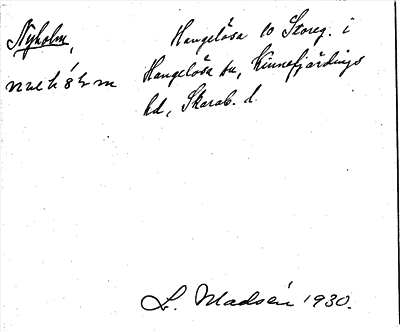 Nyholm,
Hangelösa 10 Storeg. i
Hangelösa sn, Kinnefjärdings
hd, Skarab. l.
L. Madsén 1930.